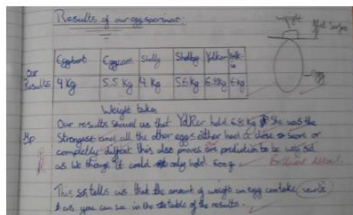 Results of our eggsperiment.
weight
flat surface
Eggbert Eggcom Shelly Yolker
Egg
Our
Results 4 Kg 5.5 Kg 4 Kg 5.6 Kg 6.8 Kg 6 Kg
Weight taken
Our results showed us that Yolker held 6.8 Kg She was the
strongest and all the other eggs either had a close score or
completly different this also proves our prediction to be wrong
as we though it could only hold 600g
Brilliant
This tells us that the amount of weight an egg can take
as you can see in the table of the results.